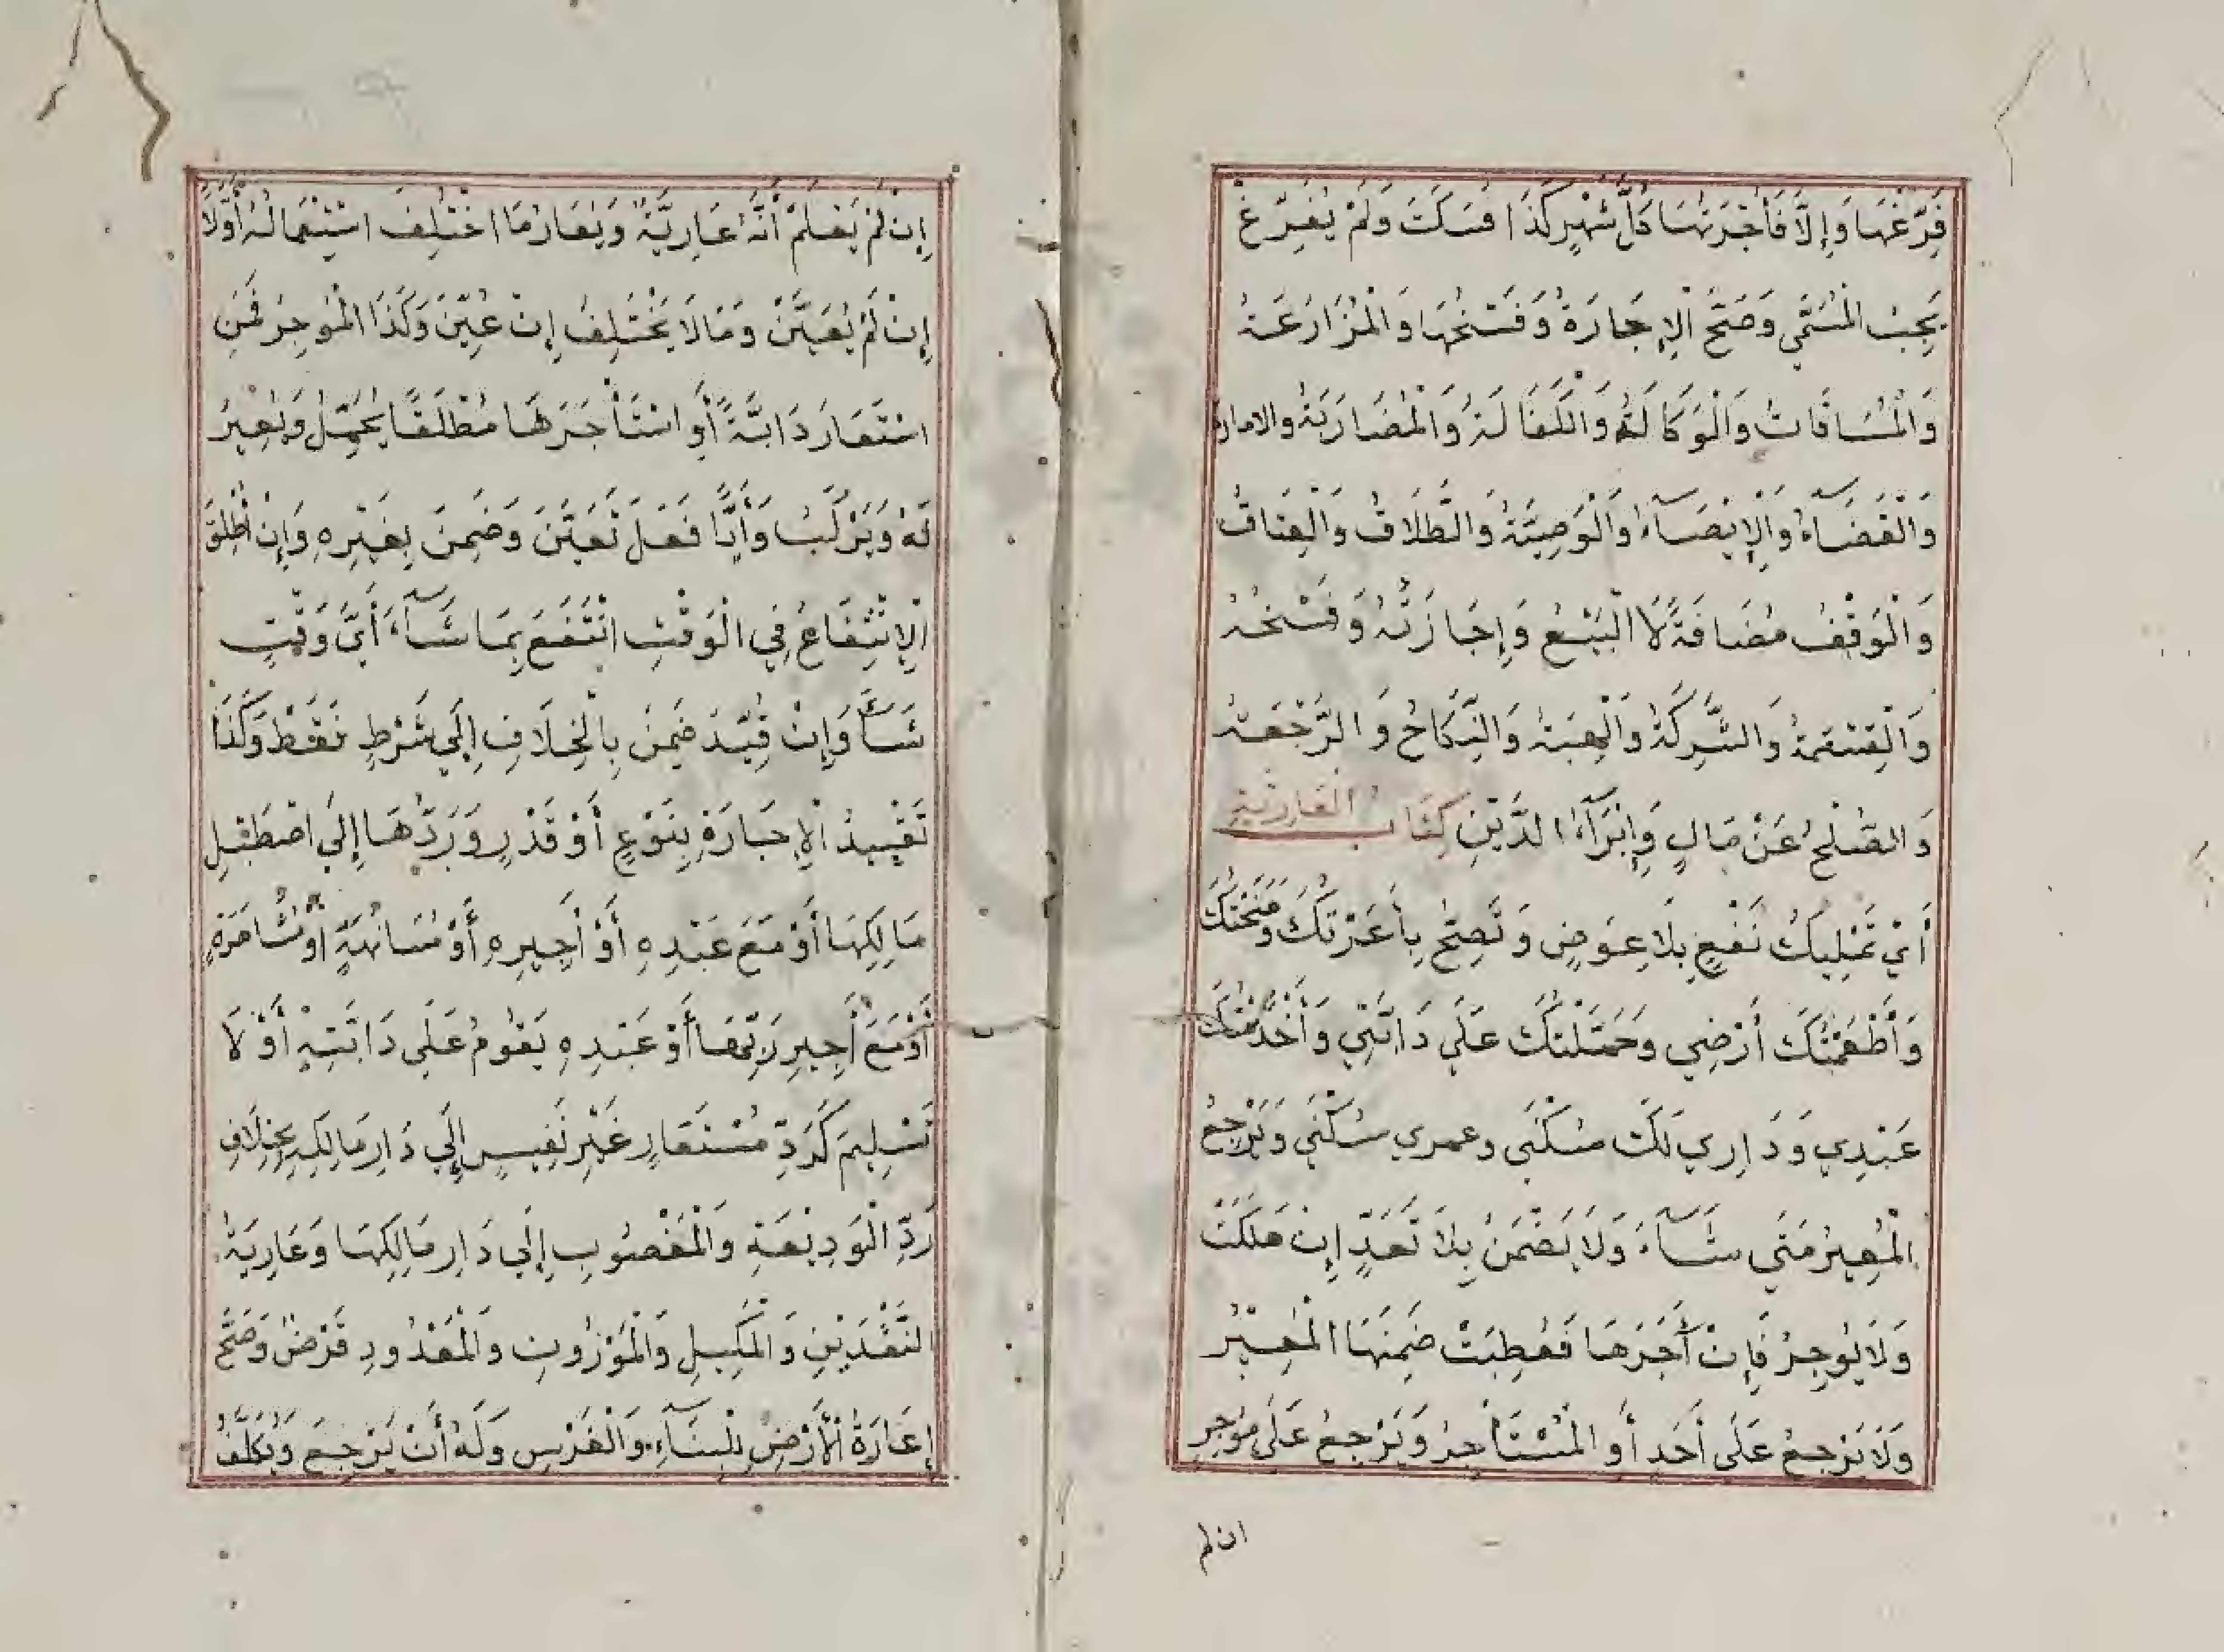 فَرِّغْهَا وَإِلَّا فَأُجْرَتُهَا كُلَّ شَهْرٍ كَذَا فَسَكَتَ وَلَمْ يُفَرِّغْ
يَجِبُ الْمُسَمَّي وَصَحَّ الْإِجَارَةُ وَفَسْخُهَا وَالْمُزَارَعَةُ
وَالْمُسَاقَاتُ وَالْوَكَالَةُ وَالْكَفَالَةُ وَالْمُضَارَبَةُ والامارة
وَالْقَضَآءُ وَالْإِيْصَآءُ وَالْوَصِيَّةُ وَالطَّلَاقُ وَالْعِتَاقُ
وَالْوَقْفُ مُضَافَةً لَا الْبَيْعُ وَإِجَازَتُهُ وَفَسْخُهُ
وَالْقِسْمَةُ وَالشِّرِكَةُ وَالْهِبَةُ وَالنِّكَاحُ وَالرَّجْعَةُ
وَالصُّلْحُ عَنْ مَالٍ وَإِبْرَآءُ الدَّيْنِ كِتَابُ الْعَارِيَّةِ
أَيْ تَمْلِيكُ نَفْعٍ بِلَا عِوَضٍ وَتَصِحُّ بِأَعَرْتُكَ وَمَنَحْتُكَ
وَأَطْعَمْتُكَ أَرْضِي وَحَمَلْتُكَ عَلَي دَابَّتِي وَأَخْدَمْتُكَ
عَبْدِي وَدَارِي لَكَ سُكْنَي وعمري سُكْنَي وَيَرْجِعُ
الْمُعِيرُ مَتَي شَآءَ وَلَا يَضْمَنُ بِلَا تَعَدٍّ إِنْ هَلَكَتْ
وَلَا يُوجِرُ فَإِنْ آجَرَهَا فَعُطِبَتْ ضَمِنَهَا الْمُعِيْرُ
وَلَا يَرْجِعُ عَلَى أَحَدٍ أَوِ الْمُسْتَأْجِرُ وَيَرْجِعُ عَلَى مُوجِرِ
ان لم
إِنْ لَمْ يَعْلَمْ أَنَّهُ عَارِيَّةٌ وَيُعَارُ مَا اخْتَلَفَ اسْتِعْمَالُهُ أَوَّلًا
إِنْ لَمْ يُعَيَّنْ وَمَا لَا يَخْتَلِفُ إِنْ عُيِّنَ وَكَذَا الْمُوجِرُ فَمَنِ
اسْتَعَارَ دَابَّةً أَوِ اسْتَأْجَرَهَا مُطْلَقًا يُحَمِّلُ وَيُعِيرُ
لَهُ وَيَرْكَبُ وَأَيًّا فَعَلَ تَعَيَّنَ وَضَمِنَ بِغَيْرِهِ وَإِنْ أَطْلَقَ
الْإِنْتِفَاعُ فِي الْوَقْتِ انْتَفَعَ بِمَا شَآءَ أَيَّ وَقْتٍ
شَآءَ وَإِنْ قُيِّدَ ضَمِنَ بِالْخِلَافِ إِلَي شَرْطٍ فَقَطْ وَكَذَا
تَقْيِيدُ الْإِجَارَةِ بِنَوْعٍ أَوْ قَدْرٍ وَرَدُّهَا إِلَي اصْطَبْلِ
مَالِكِهَا أَوْ مَعَ عَبْدِهِ أَوْ أَجِيرِهِ أَوْ مُسَانَهَةً أَوْ مُشَاهَرَةً
أَوْ مَعَ أَجِيرِ رَبِّهَا أَوْ عَبْدِهِ يَقُومُ عَلَي دَابَّتِهِ أَوْ لَا
تَسْلِيمٌ كَرَدِّ مُسْتَعَارٍ غَيْرِ نَفِيسٍ إِلَي دَارِ مَالِكِهِ بِخِلَافِ
رَدِّ الْوَدِيْعَةِ وَالْمَغْصُوبِ إِلَي دَارِ مَالِكِهَا وَعَارِيَةُ
النَّقْدَيْنِ وَالْمَكِيلِ وَالْمَوْزُونِ وَالْمَعْدُودِ قَرْضٌ وَصَحَّ
إِعَارَةُ الْأَرْضِ لِلْبِنَآءِ وَالْغَرْسِ وَلَهُ أَنْ يَرْجِعَ وَيُكَلِّفُ